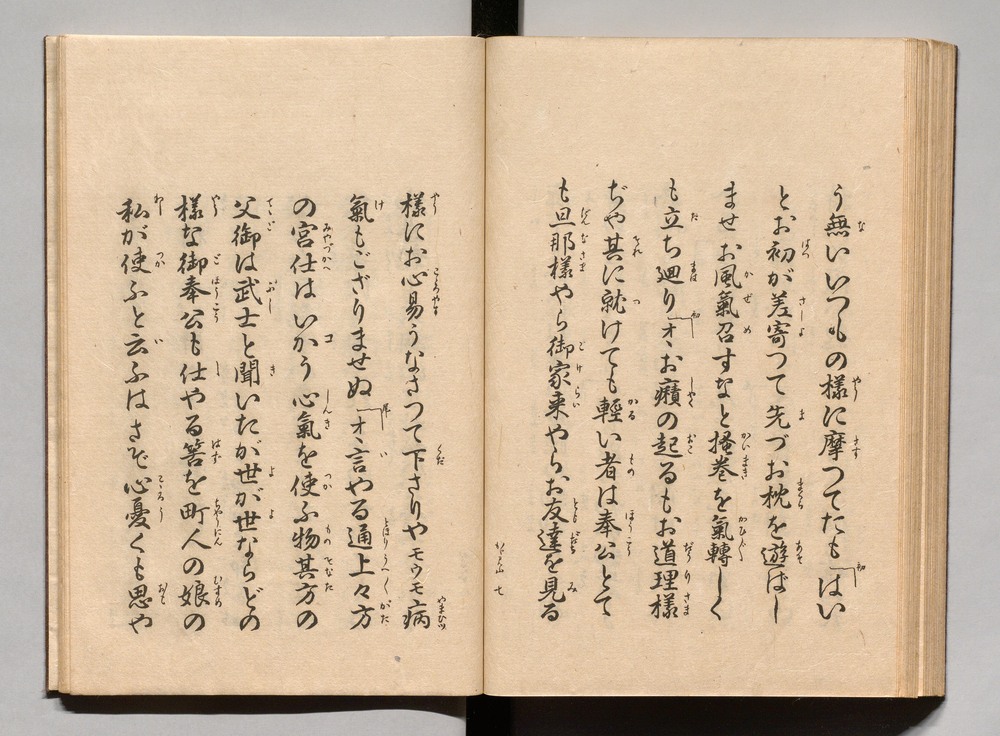 う無いいつもの様に摩つてたも「はい
とお初が差寄つて先づお枕を遊ばし
ませお風氣召すなと掻巻を氣轉しく
も立ち廻り「オヽお癪の起るもお道理様
ぢや其に就けても輕い者は奉公とて
も旦那様やら御家来やらお友達を見る
七
様にお心易うなさつて下さりやモウモ病
氣もござりませぬ「オヽ言やる通上々方
の宮仕はいかう心氣を使ふ物其方の
父御は武士と聞いたが世が世ならどの
様な御奉公も仕やる筈を町人の娘の
私が使ふと云ふはさぞ心憂くも思や